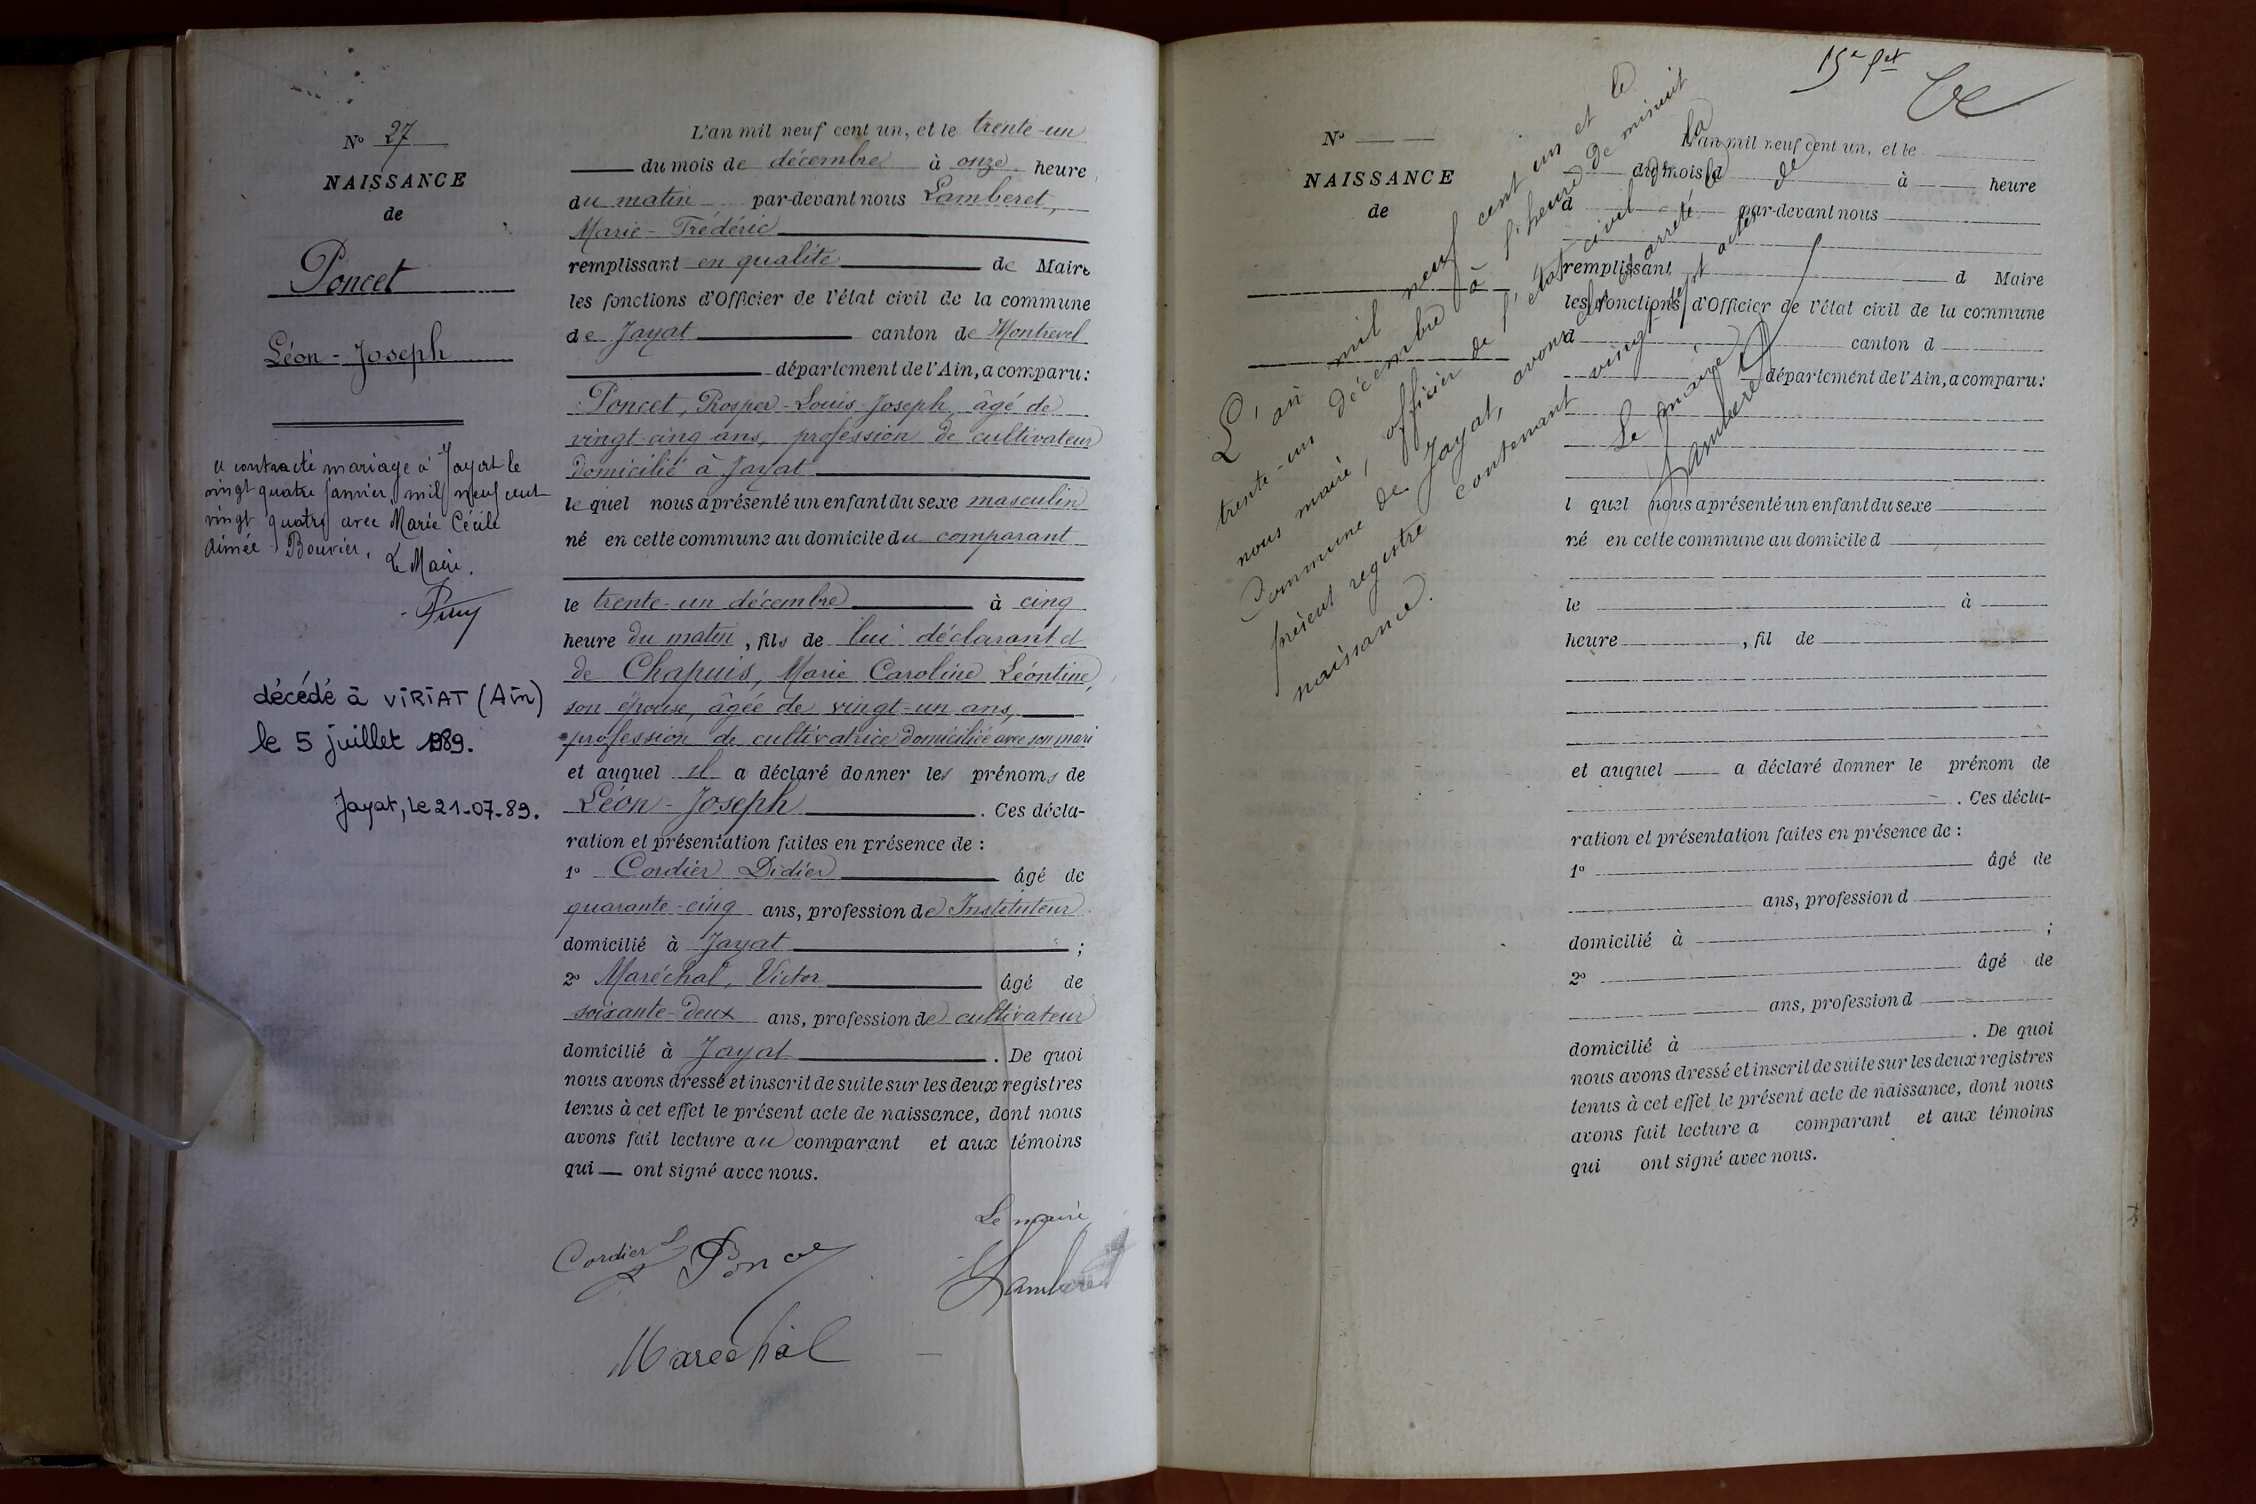 N° 27
NAISSANCE
de
Poncet
Léon-Joseph
a contracté mariage à Jayat le
vingt quatre janvier mil neuf cent
vingt quatre avec Marie Cécile
Aimée Bouvier.
Le Maire.
décédé à VIRIAT (Ain)
le 5 juillet 1989.
Jayat, le 21-07-89.
L'an mil neuf cent un, et le trente-un
du mois de décembre à onze heure
du matin par-devant nous Lamberet,
Marie-Frédéric
remplissant en qualité de Maire
les fonctions d'Officier de l'état civil de la commune
de Jayat canton de Montrevel
département de l'Ain, a comparu:
Poncet, Prosper-Louis-Joseph, âgé de
vingt-cinq ans, profession de cultivateur
domicilié à Jayat
lequel nous a présenté un enfant du sexe masculin
né en cette commune au domicile du comparant
le trente-un décembre à cinq
heure du matin, fils de lui déclarant et
de Chapuis, Marie Caroline Léontine,
son épouse, âgée de vingt-un ans,
profession de cultivatrice domiciliée avec son mari
et auquel il a déclaré donner les prénoms de
Léon-Joseph. Ces décla-
ration et présentation faites en présence de :
1° Cordier Didier âgé de
quarante-cinq ans, profession de Instituteur
domicilié à Jayat ;
2° Maréchal, Victor âgé de
soixante-deux ans, profession de cultivateur
domicilié à Jayat. De quoi
nous avons dressé et inscrit de suite sur les deux registres
tenus à cet effet le présent acte de naissance, dont nous
avons fait lecture au comparant et aux témoins
qui ont signé avec nous.
Le maire
Cordier Poncet Lamberet
Maréchal
N°
NAISSANCE
de
L'an mil neuf cent un et le
trente-un décembre à l'heure de minuit
nous maire, officier de l'état civil de la
Commune de Jayat, avons clos et arrêté le
présent registre contenant vingt-sept actes de
naissance.
Le maire
Lamberet
L'an mil neuf cent un, et le
du mois d à heure
d par-devant nous
remplissant d Maire
les fonctions d'Officier de l'état civil de la commune
d canton d
département de l'Ain, a comparu:
l quel nous a présenté un enfant du sexe
né en cette commune au domicile d
le à
heure , fil de
et auquel a déclaré donner le prénom de
. Ces décla-
ration et présentation faites en présence de :
1° âgé de
ans, profession d
domicilié à ;
2° âgé de
ans, profession d
domicilié à . De quoi
nous avons dressé et inscrit de suite sur les deux registres
tenus à cet effet le présent acte de naissance, dont nous
avons fait lecture a comparant et aux témoins
qui ont signé avec nous.